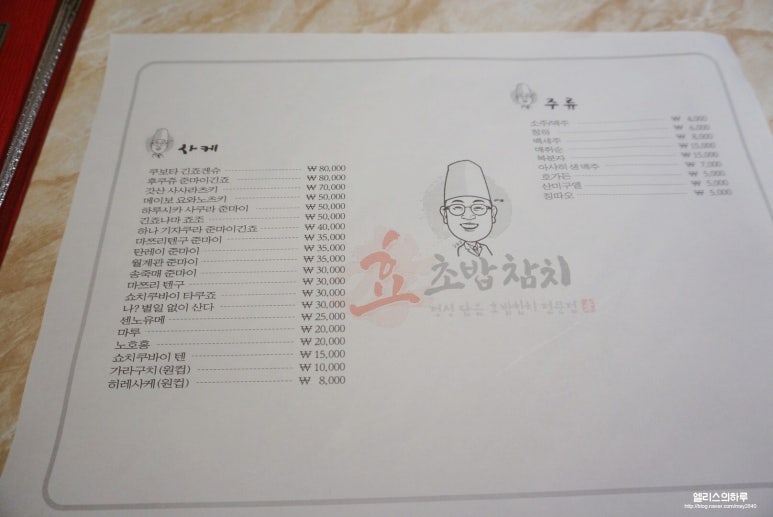 사케
쿠보타 긴죠겐슈 ₩ 80,000
후쿠쥬 준마이긴죠 ₩ 80,000
갓산 사사라츠키 ₩ 70,000
메이보 요와노츠키 ₩ 50,000
하루시카 사쿠라 준마이 ₩ 50,000
긴죠나마 죠조 ₩ 50,000
하나 기자쿠라 준마이긴죠 ₩ 40,000
마쯔리텐구 준마이 ₩ 35,000
탄레이 준마이 ₩ 35,000
월계관 준마이 ₩ 35,000
송죽매 준마이 ₩ 30,000
마쯔리 텐구 ₩ 30,000
쇼치쿠바이 타쿠죠 ₩ 30,000
나? 별일 없이 산다 ₩ 30,000
센노유메 ₩ 25,000
마루 ₩ 20,000
노호홍 ₩ 20,000
쇼치쿠바이 텐 ₩ 15,000
가라구치(원컵) ₩ 10,000
히레사케(원컵) ₩ 8,000
주류
소주/맥주 ₩ 4,000
청하 ₩ 6,000
백세주 ₩ 8,000
매취순 ₩ 15,000
복분자 ₩ 15,000
아사히 생 맥주 ₩ 7,000
호가든 ₩ 5,000
산미구엘 ₩ 5,000
칭따오 ₩ 5,000
효 초밥참치
정성 담은 초밥참치 전문점
앨리스의하루
http://blog.naver.com/mey2840